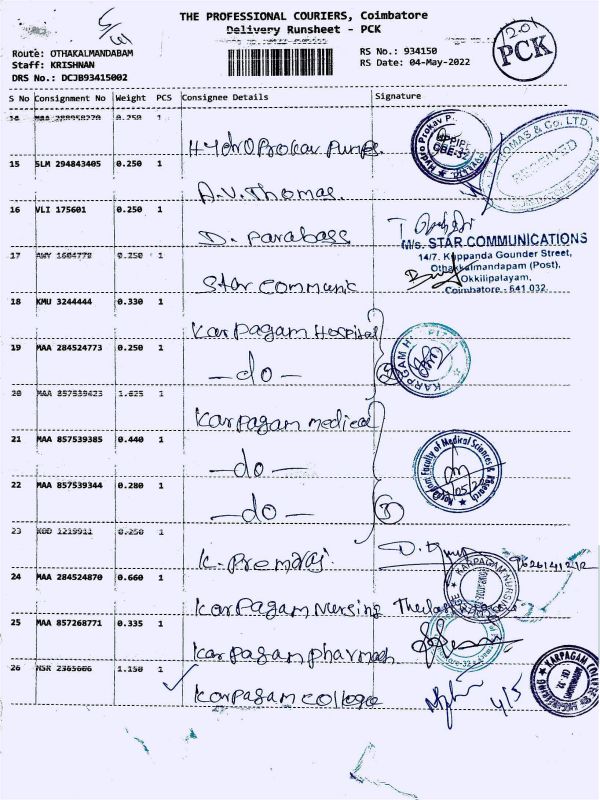 THE PROFESSIONAL COURIERS, Coimbatore
Delivery Runsheet - PCK
Route: OTHAKALMANDABAM
Staff: KRISHNAN
DRS No.: DCJB93415002
RS No.: 934150
RS Date: 04-May-2022
PCK
S No Consignment No Weight PCS Consignee Details Signature
0.250 1 Hydro Prokav Pumps.
15 SLM 294843405 0.250 1 A.V. Thomas.
16 VLI 175601 0.250 1 D. Parabass
17 AWY 1604770 0.250 1 Star Communic
M/s. STAR COMMUNICATIONS
14/7, Kuppanda Gounder Street,
Othakkalmandapam (Post),
Okkilipalayam,
Coimbatore - 641 032.
18 KMU 3244444 0.330 1 Karpagam Hospital
19 MAA 284524773 0.250 1 —do—
20 MAA 857539423 1.625 1 Karpagam medical
21 MAA 857539385 0.440 1 —do—
22 MAA 857539344 0.280 1 —do—
Karpagam Faculty of Medical Sciences & Research
23 KOD 1219911 0.250 1 K. Premraj.
24 MAA 284524870 0.660 1 Karpagam Nursing
25 MAA 857268771 0.335 1 Karpagam pharmach
26 NSR 2365606 1.150 1 Karpagam College
4/5